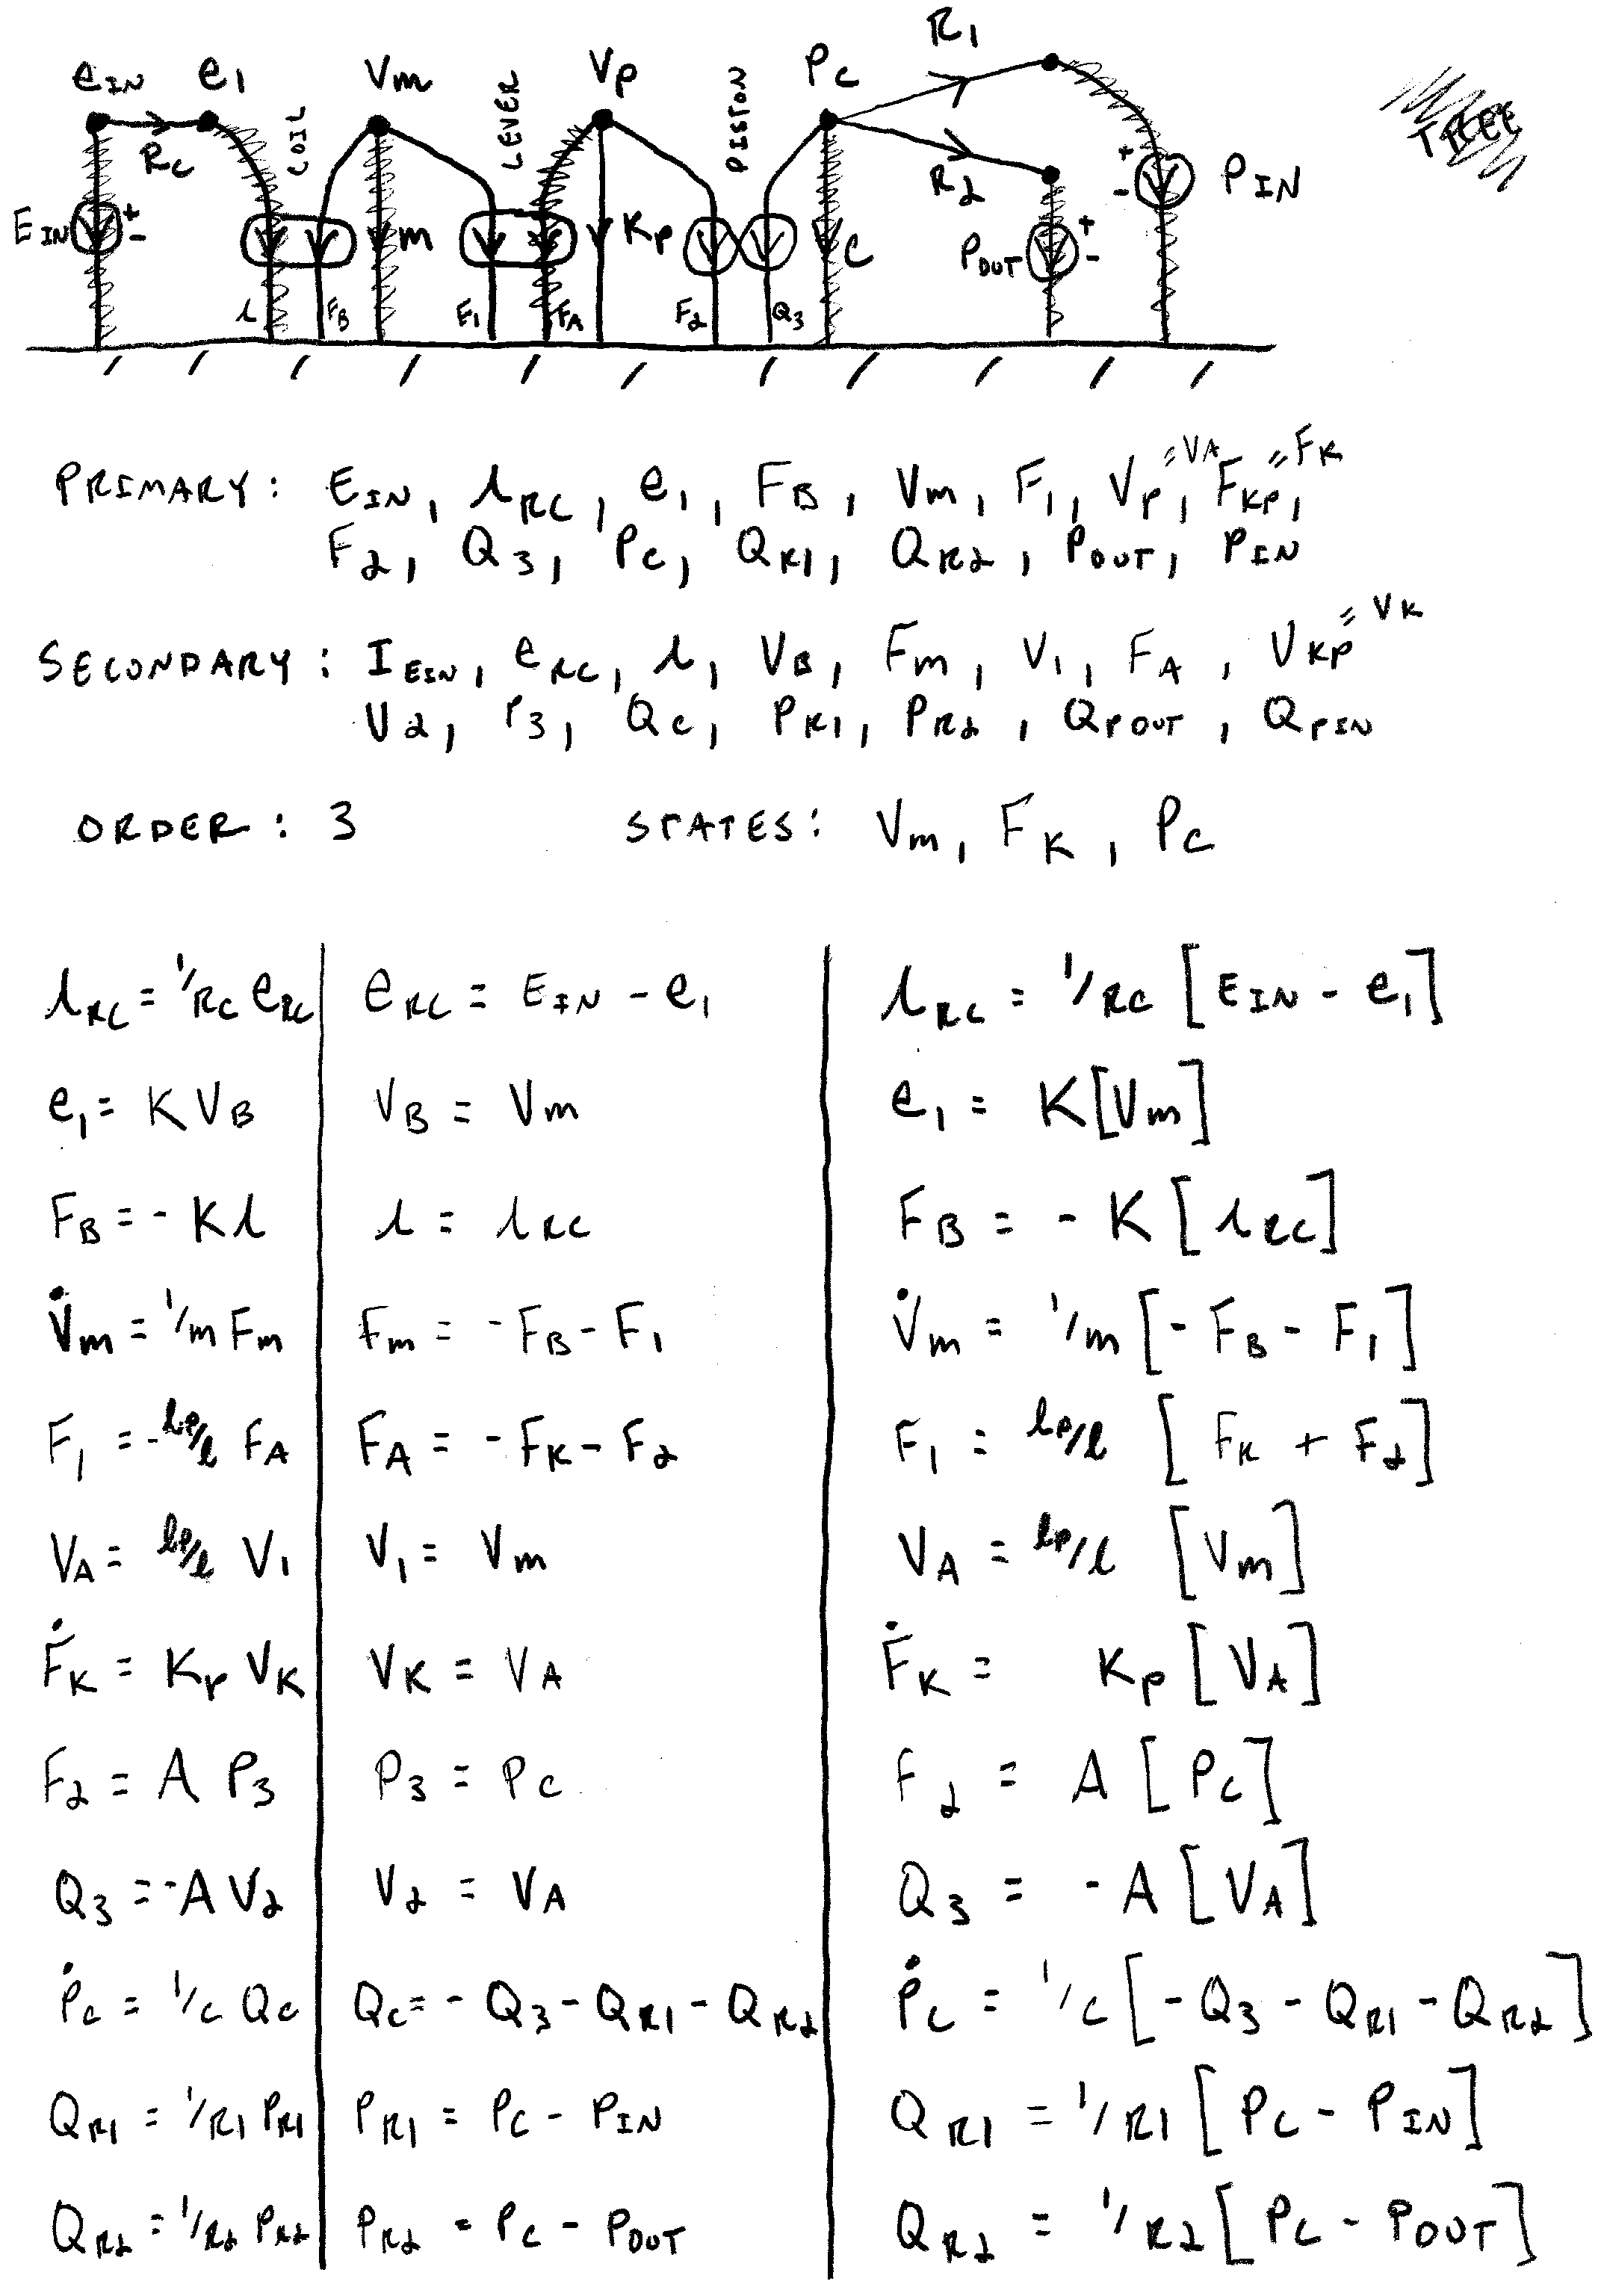 e_IN e_1 V_m V_P P_C R_1
COIL LEVER PISTON TREE
R_C R_2 P_IN
E_IN + - m K_P C P_OUT + - + -
i F_B F_1 F_A F_2 Q_3
PRIMARY: E_IN, i_RC, e_1, F_B, V_m, F_1, V_P =V_A, F_KP =F_K,
F_2, Q_3, P_C, Q_R1, Q_R2, P_OUT, P_IN
SECONDARY: I_EIN, e_RC, i, V_B, F_m, V_1, F_A, V_KP =V_K
V_2, P_3, Q_C, P_R1, P_R2, Q_POUT, Q_PIN
ORDER: 3 STATES: V_m, F_K, P_C
i_RC = 1/R_C e_RC e_RC = E_IN - e_1 i_RC = 1/R_C [E_IN - e_1]
e_1 = K V_B V_B = V_m e_1 = K[V_m]
F_B = - K i i = i_RC F_B = - K [i_RC]
V̇_m = 1/m F_m F_m = - F_B - F_1 V̇_m = 1/m [- F_B - F_1]
F_1 = - l_P/l F_A F_A = - F_K - F_2 F_1 = l_P/l [F_K + F_2]
V_A = l_P/l V_1 V_1 = V_m V_A = l_P/l [V_m]
Ḟ_K = K_P V_K V_K = V_A Ḟ_K = K_P [V_A]
F_2 = A P_3 P_3 = P_C F_2 = A [P_C]
Q_3 = - A V_2 V_2 = V_A Q_3 = - A [V_A]
Ṗ_C = 1/C Q_C Q_C = - Q_3 - Q_R1 - Q_R2 Ṗ_C = 1/C [- Q_3 - Q_R1 - Q_R2]
Q_R1 = 1/R1 P_R1 P_R1 = P_C - P_IN Q_R1 = 1/R1 [P_C - P_IN]
Q_R2 = 1/R2 P_R2 P_R2 = P_C - P_OUT Q_R2 = 1/R2 [P_C - P_OUT]